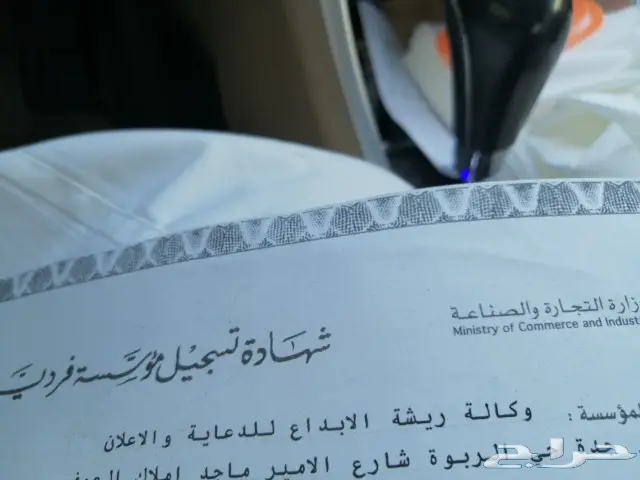 وزارة التجارة والصناعة
Ministry of Commerce and Indust
شهادة تسجيل مؤسسة فردية
المؤسسة: وكالة ريشة الابداع للدعاية والاعلان
جدة حي الربوة شارع الامير ماجد املاك
حراج